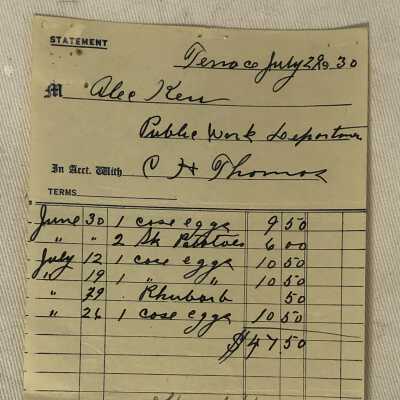 STATEMENT
Terrace July 28 1930
M Alec Kerr
Public Work Department
In Acct. With C H Thomas
TERMS
June 30 1 case eggs 9 50
" " 2 sk Potatoes 6 00
July 12 1 case eggs 10 50
" 19 1 " " 10 50
" 29 . Rhubarb 50
" 26 1 case eggs 10 50
$47 50